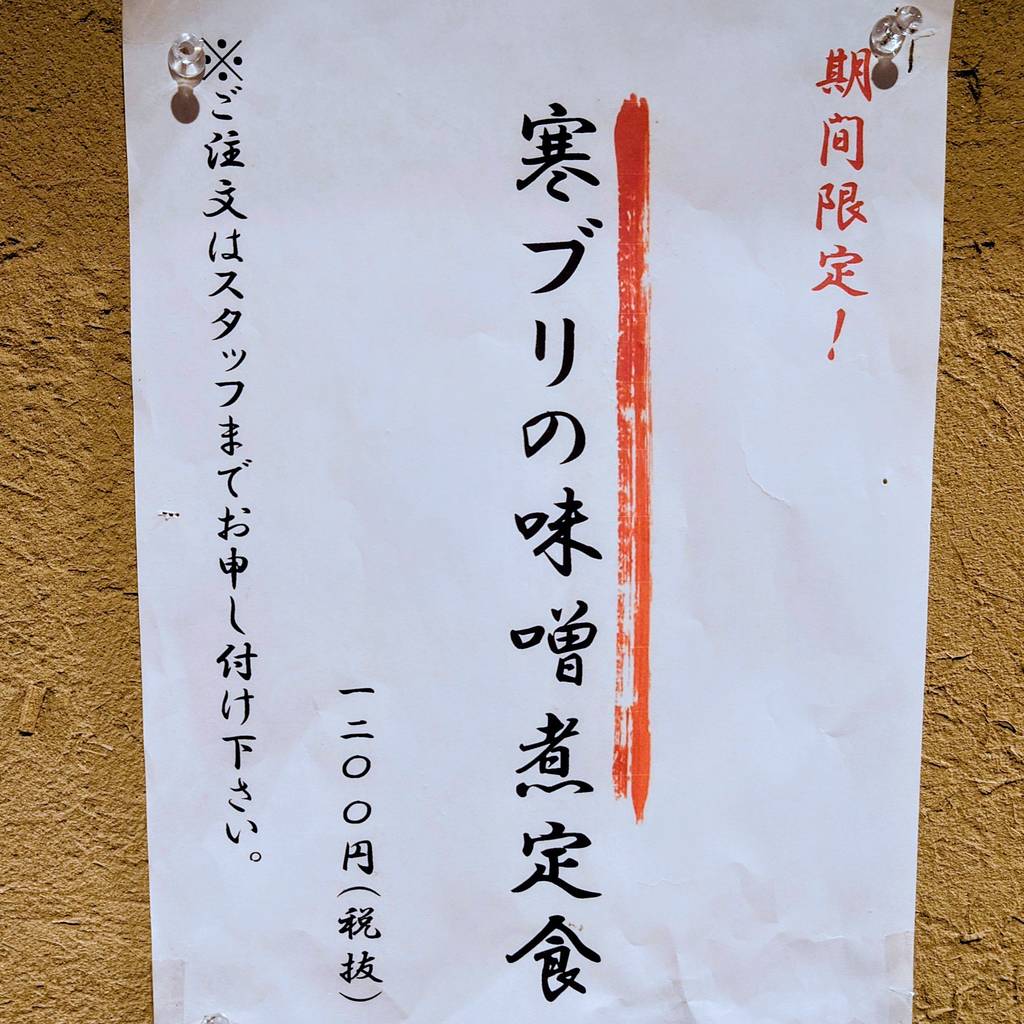 期間限定!
寒ブリの味噌煮定食
一二〇〇円(税抜)
※ご注文はスタッフまでお申し付け下さい。